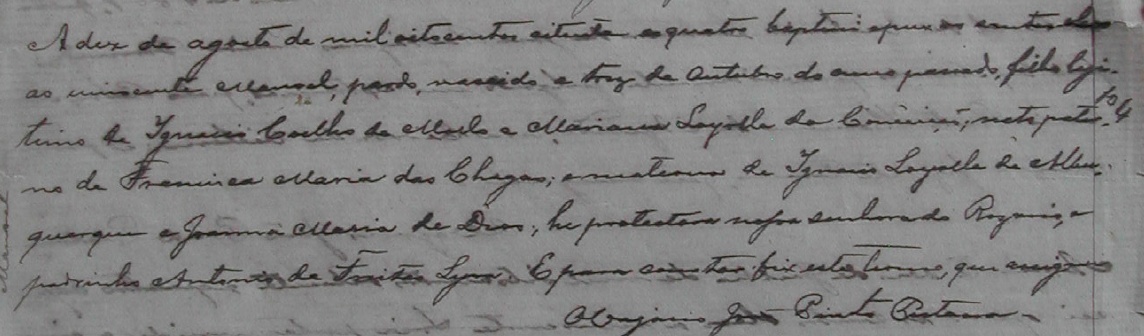 A dez de agosto de mil oitocentos oitenta e quatro baptisei e pus os santos oleos
ao innocente Manoel, pardo, nascido a treze de Outubro do anno passado, filho legi-
timo de Ignacio Coelho de Mello e Marianna Loyolla da Conceição, neto pater-
no de Francisca Maria das Chagas, e materno de Ignacio Loyolla de Albu-
querque e Joanna Maria de Deos; he protectora nossa Senhora do Rozario, e
padrinho Antonio de Freitas Lyra. E para constar fiz este termo, que assigno
O Vigario José Pinto
Manoel